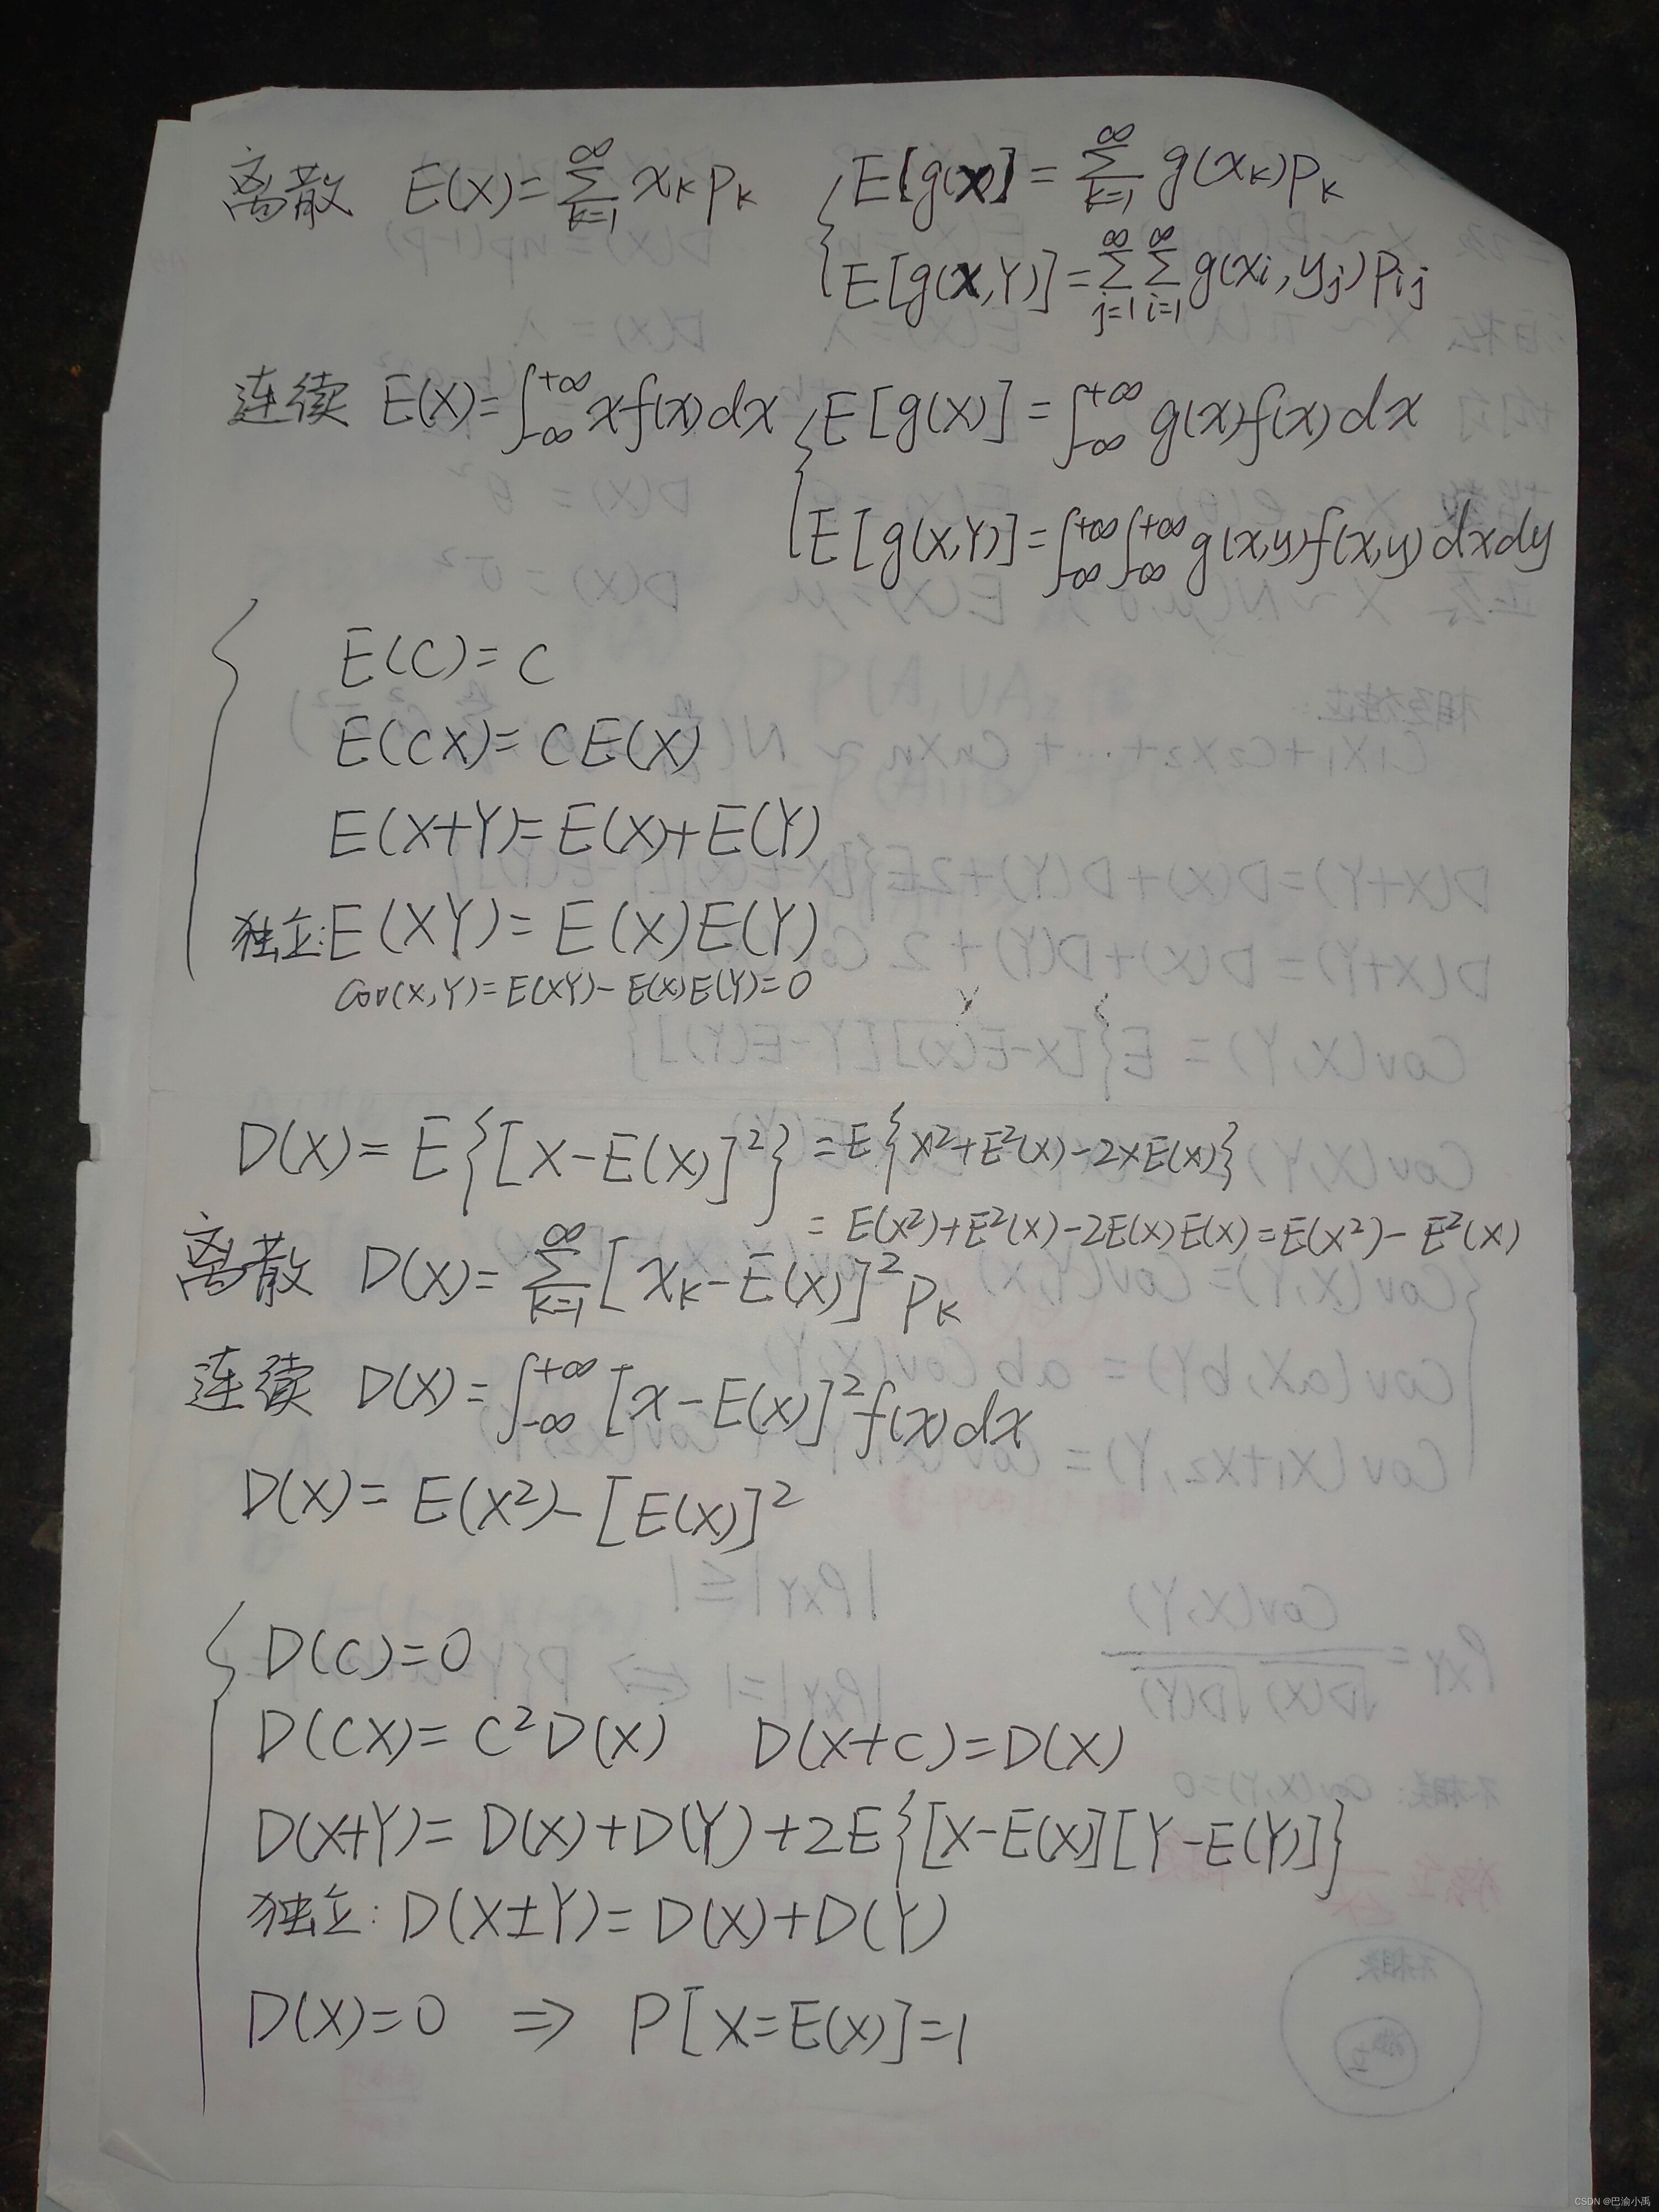 离散 E(X)=∑_{k=1}^{∞} x_k p_k { E[g(X)]=∑_{k=1}^{∞} g(x_k)p_k
E[g(X,Y)]=∑_{j=1}^{∞}∑_{i=1}^{∞} g(x_i,y_j)p_{ij}
连续 E(X)=∫_{-∞}^{+∞} xf(x)dx { E[g(X)]=∫_{-∞}^{+∞} g(x)f(x)dx
E[g(X,Y)]=∫_{-∞}^{+∞}∫_{-∞}^{+∞} g(x,y)f(x,y)dxdy
{ E(C)=C
E(CX)=CE(X)
E(X+Y)=E(X)+E(Y)
独立:E(XY)=E(X)E(Y)
Cov(X,Y)=E(XY)-E(X)E(Y)=0
D(X)=E{[X-E(X)]²}=E{X²+E²(X)-2XE(X)}
=E(X²)+E²(X)-2E(X)E(X)=E(X²)-E²(X)
离散 D(X)=∑_{k=1}^{∞}[x_k-E(X)]²p_k
连续 D(X)=∫_{-∞}^{+∞}[x-E(X)]²f(x)dx
D(X)=E(X²)-[E(X)]²
{ D(C)=0
D(CX)=C²D(X) D(X+C)=D(X)
D(X+Y)=D(X)+D(Y)+2E{[X-E(X)][Y-E(Y)]}
独立:D(X±Y)=D(X)+D(Y)
D(X)=0 ⇒ P[X=E(X)]=1
CSDN @巴渝小禹